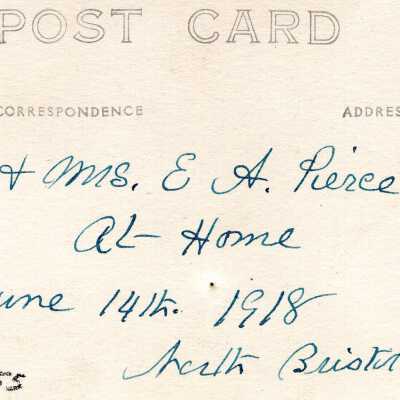 POST CARD
CORRESPONDENCE ADDRES
& Mrs. E A. Pierce
At Home
une 14th. 1918
North Bristol